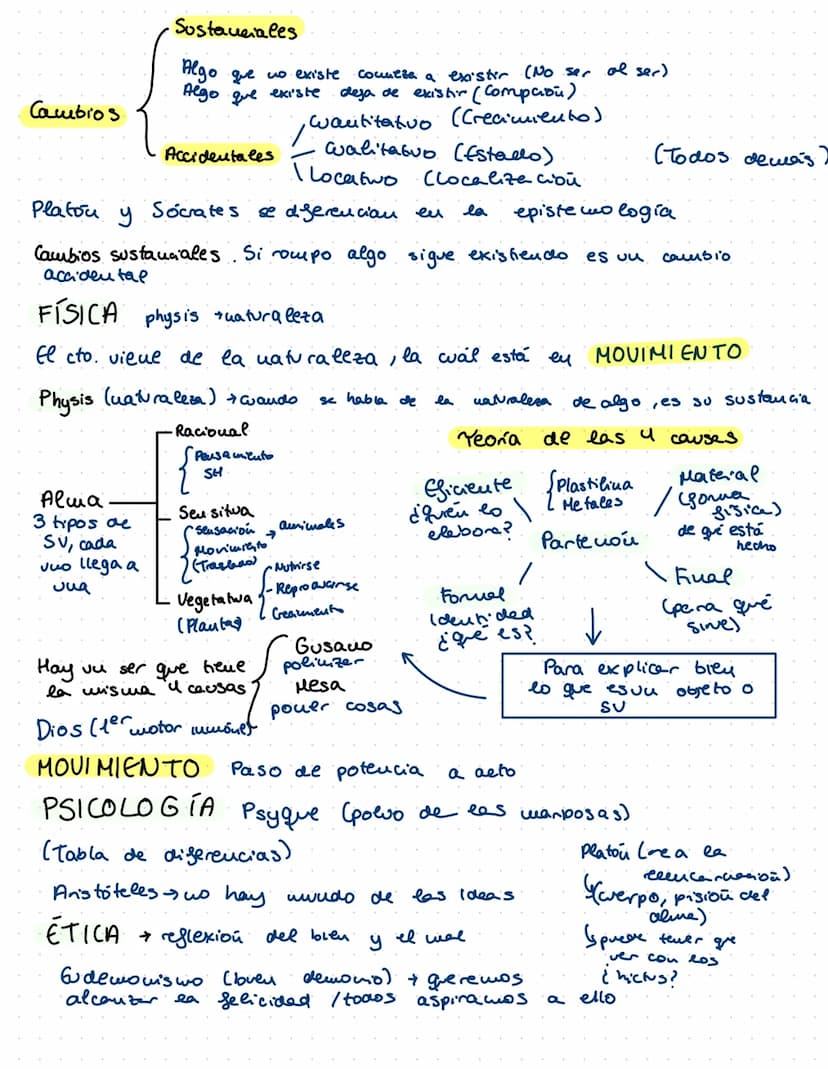 Sustanciales
Algo que no existe comieza a existir (No ser al ser)
Algo que existe deja de existir (Compción)
Cambios
Cuantitativo (Crecimiento)
Accidentales
Cualitativo (Estado)
(Todos demás)
Locativo (Localización
Platón y Sócrates se diferencian en la epistemología
Cambios sustanciales. Si rompo algo sigue existiendo es un cambio
accidental
FÍSICA physis → naturaleza
El cto. viene de la naturaleza, la cuál está en MOVIMIENTO
Physis (naturaleza) → cuando se habla de la naturaleza de algo, es su sustancia
Alma
3 tipos de
SV, cada
uno llega a
una
Racional
Pensamiento
SH
Sensitiva
Sensación → animales
Movimiento
(Traslado)
Vegetativa
(Plantas)
Nutrirse
- Reproducirse
Crecimiento
Teoría de las 4 causas
Eficiente
¿Quién lo
elabora?
Plastilina
Metales
Material
(forma
física)
de qué está
hecho
Partenón
Formal
Identidad
¿qué es?
Final
(para qué
sirve)
Para explicar bien
lo que es un objeto o
SV
Hay un ser que tiene
la misma 4 causas
Gusano
polinizar
Mesa
poner cosas
Dios (1er motor inmóvel)
MOVIMIENTO Paso de potencia a acto
PSICOLOGÍA Psyque (polvo de las mariposas)
(Tabla de diferencias)
Aristóteles → no hay mundo de las Ideas
Platón (rea la
reencarnación)
(cuerpo, pisión del
alma)
puede tener que
ver con los
¿hictus?
ÉTICA → reflexión del bien y el mal
Eudemonismo (buen demonio) → queremos
alcanzar la felicidad / todos aspiramos a ello